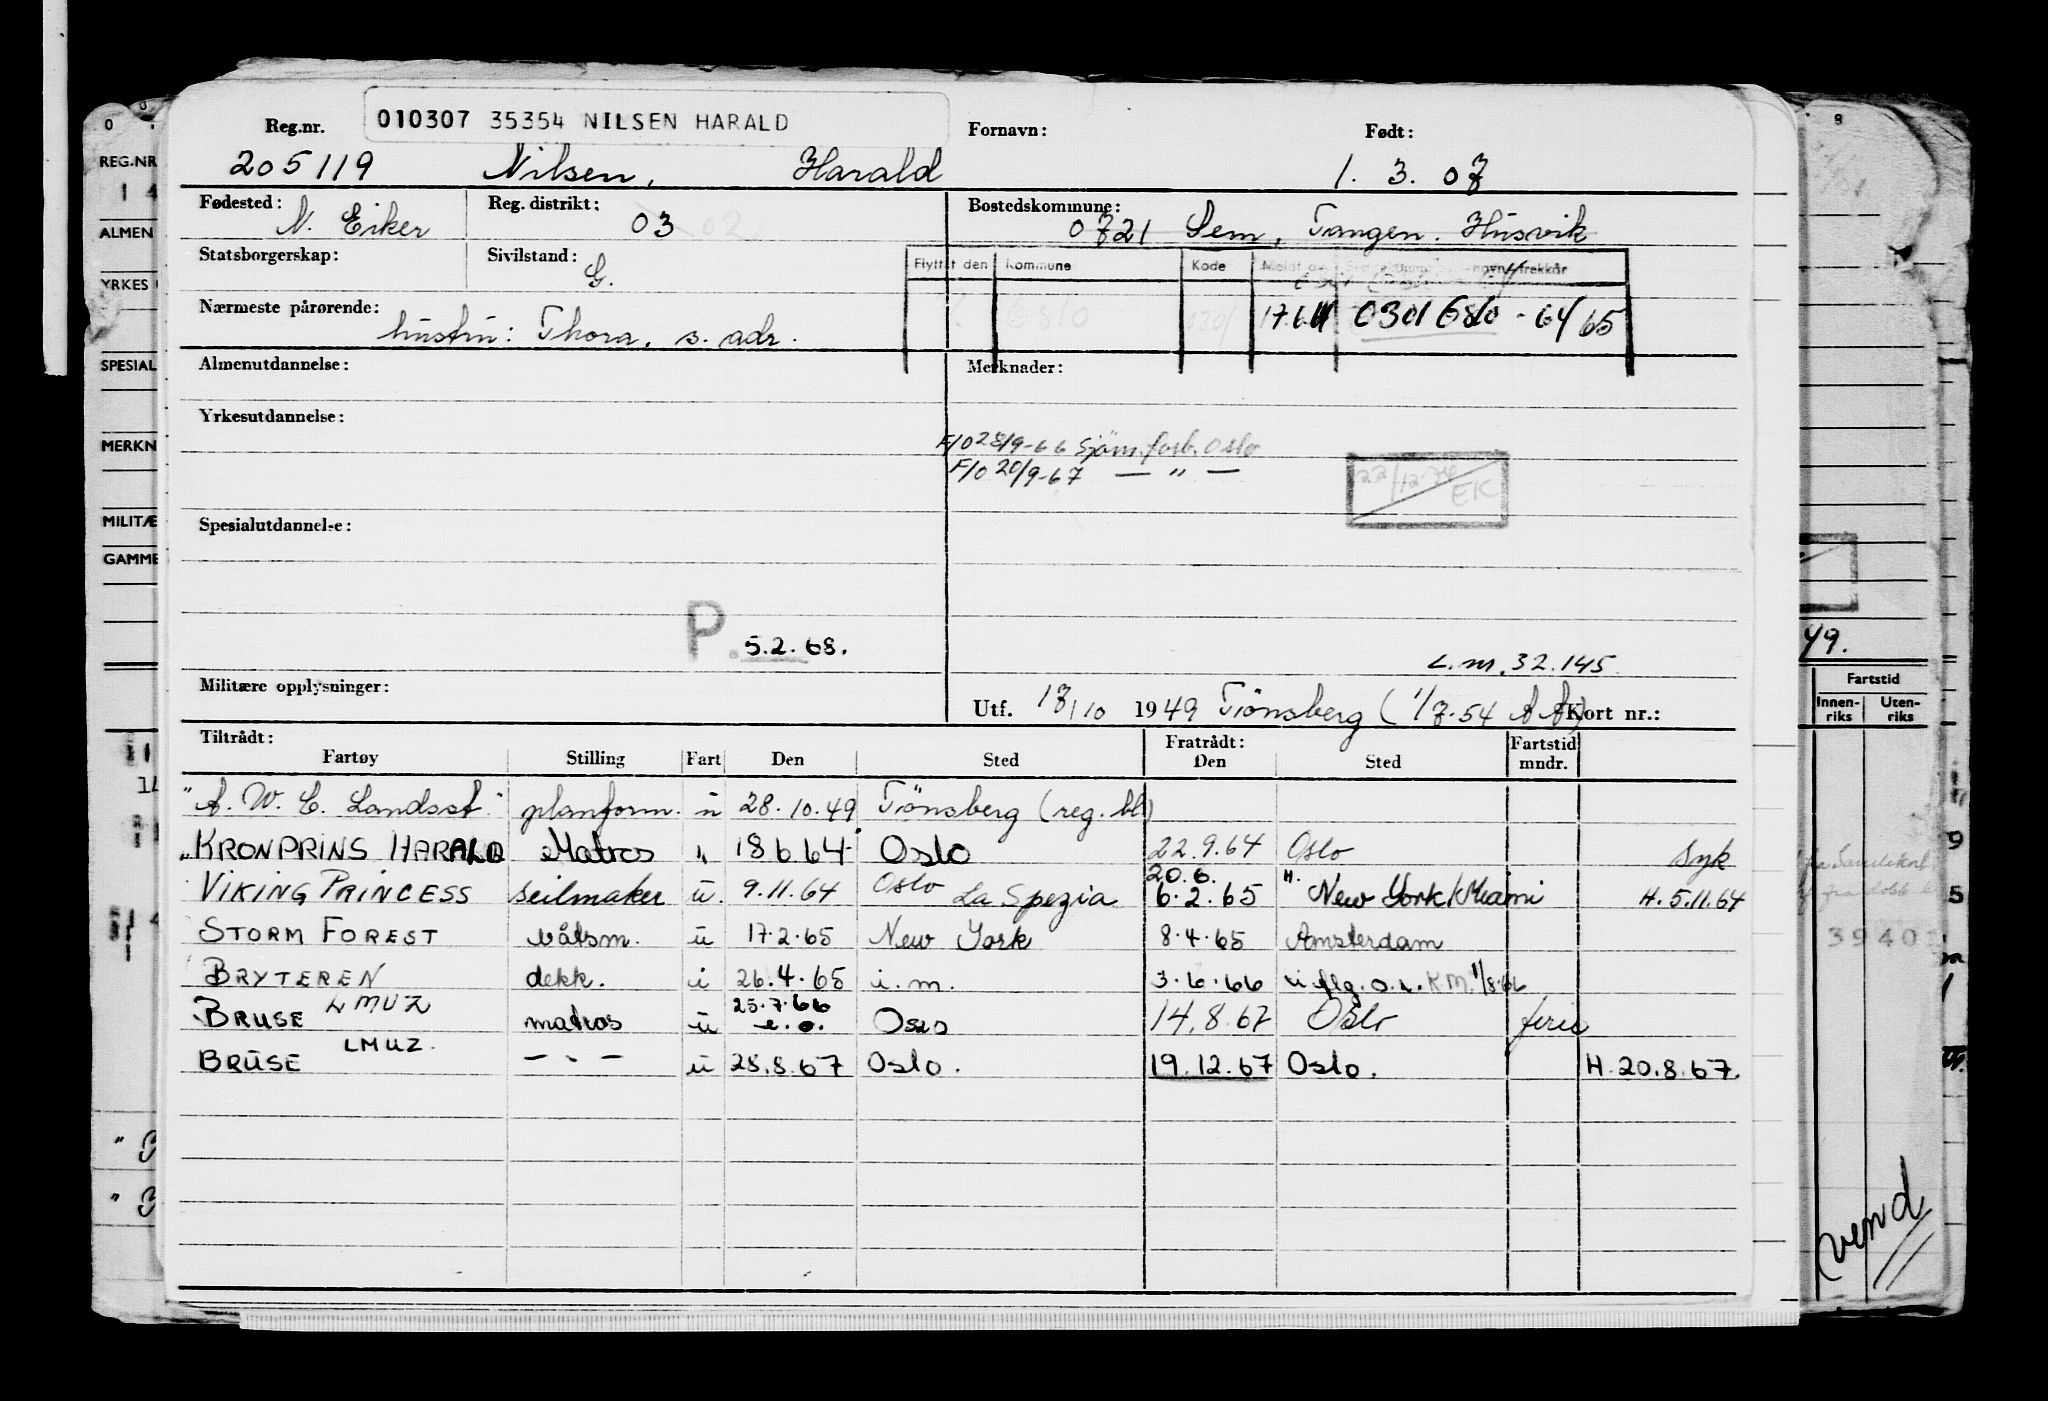 010307 35354 NILSEN HARALD
Reg.nr. Fornavn: Født:
205119 Nilsen, Harald 1. 3. 07
Fødested: N. Eiker Reg. distrikt: 03 02 Bostedskommune: 0721 Sem, Tangen. Husvik
Statsborgerskap: Sivilstand: G.
Flyttet den Kommune Kode
Nærmeste pårørende: hustru: Thora, s. adr. Oslo 0301 0301 Oslo - 64/65
Almenutdannelse: Merknader:
Yrkesutdannelse:
F/O 28/9-66 Sjöm.forb. Oslo
F/O 20/9-67 — " —
22/12-76 EK
Spesialutdannelse:
P. 5.2.68.
L.nr. 32.145
Militære opplysninger:
Utf. 17/10 1949 Tönsberg (1/7-54 A A) Kort nr.:
Tiltrådt: Fratrådt: Fartstid
Fartøy Stilling Fart Den Sted Den Sted mndr.
"A. W. C. Landsst." planform. u 28.10.49 Tönsberg (reg. bl)
"KRONPRINS HARALD Matros " 18 6 64 Oslo 22.9.64 Oslo syk
20.6. H.
VIKING PRINCESS seilmaker u. 9.11.64 Oslo La Spezia 6.2.65 New York/Miami H. 5.11.64
STORM FOREST båtsm. u 17.2.65 New York 8.4.65 Amsterdam
BRYTEREN dekk. i 26.4.65 i.m. 3.6.66 i flg. o.r. KM. 1/8-66
BRUSE LMUZ matros u 25.7.66 e.o. Oslo 14.8.67 Oslo ferie
BRUSE LMUZ. — " — u 28.8.67 Oslo. 19.12.67 Oslo. H. 20.8.67.
REG.NR
ALMEN
YRKES
SPESIAL
MERKN
MILITÆ
GAMME
49.
Fartstid
Innen-riks Uten-riks
vend